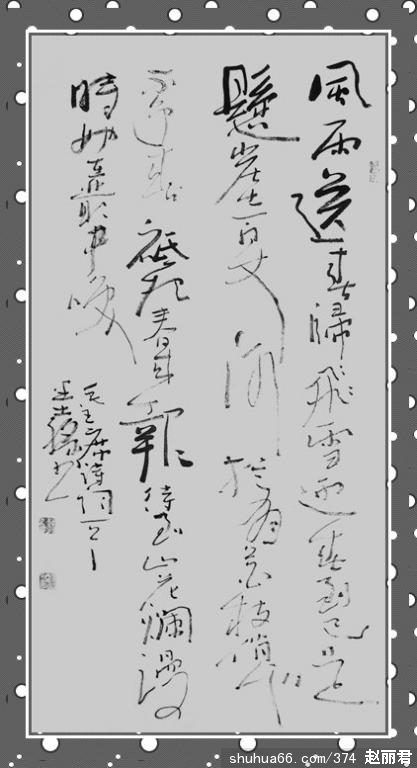 風雨送春歸飛雪迎春到已是
懸崖百丈冰猶有花枝俏
争春祗把春來報待到山花爛漫
時她在叢中笑
毛主席詩詞一
shuhua66.com/374 赵丽君